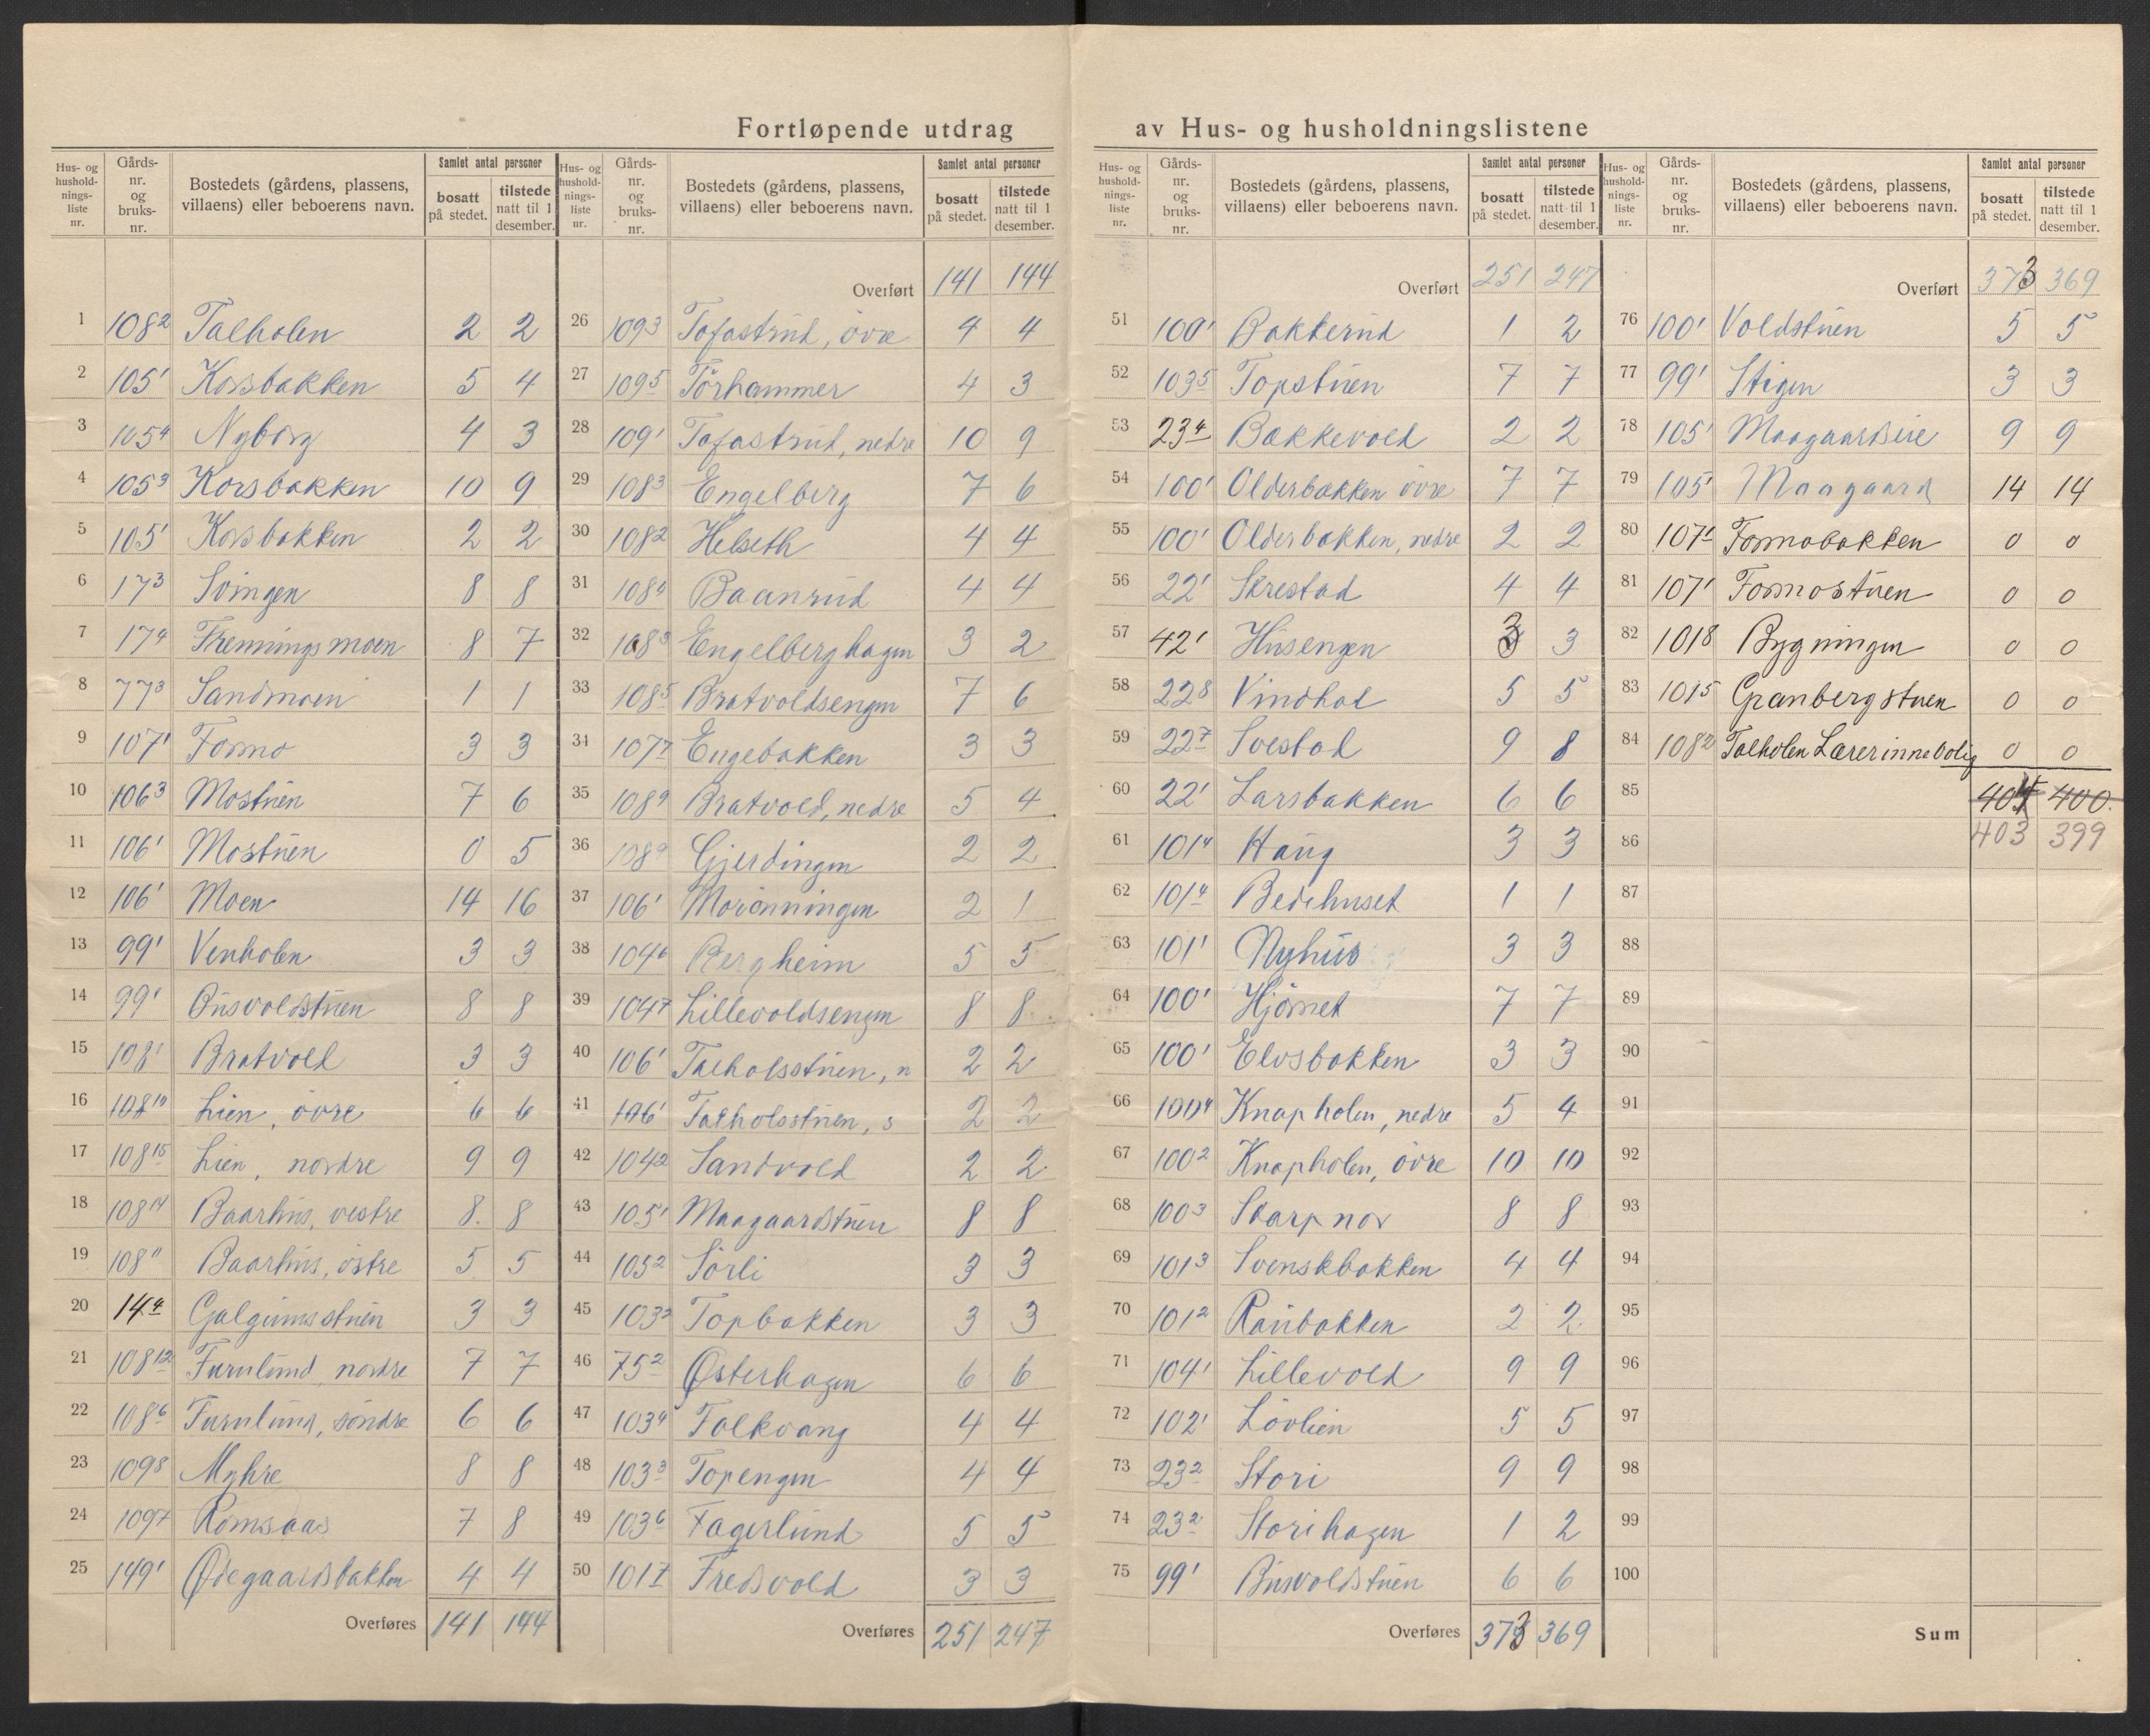 Fortløpende utdrag av Hus- og husholdningslistene
Hus- og husholdnings-liste nr. | Gårds-nr. og bruks-nr. | Bostedets (gårdens, plassens, villaens) eller beboerens navn. | Samlet antal personer bosatt på stedet. | tilstede natt til 1 desember.
1 108² Talholen 2 2
2 105¹ Korsbakken 5 4
3 105⁴ Nyborg 4 3
4 105³ Korsbakken 10 9
5 105¹ Korsbakken 2 2
6 17³ Svingen 8 8
7 17⁴ Flenningsmoen 8 7
8 77³ Sandmoen 1 1
9 107¹ Formo 3 3
10 106³ Mostuen 7 6
11 106¹ Mostuen 0 5
12 106¹ Moen 14 16
13 99¹ Venholen 3 3
14 99¹ Busvoldstuen 8 8
15 108¹ Bratvold 3 3
16 108¹⁰ Lien, övre 6 6
17 108¹⁵ Lien, nordre 9 9
18 108¹⁴ Baarhus, vestre 8 8
19 108¹¹ Baarhus, östre 5 5
20 14⁴ Galgumsstuen 3 3
21 108¹² Furulund nordre 7 7
22 108⁶ Furulund, söndre 6 6
23 109⁸ Myhre 8 8
24 109⁷ Romsaas 7 8
25 149¹ Ødegaardsbakken 4 4
Overføres 141 144
Hus- og husholdnings-liste nr. | Gårds-nr. og bruks-nr. | Bostedets (gårdens, plassens, villaens) eller beboerens navn. | Samlet antal personer bosatt på stedet. | tilstede natt til 1 desember.
Overført 141 144
26 109³ Tofastrud, övre 4 4
27 109⁵ Törhammer 4 3
28 109¹ Tofastrud, nedre 10 9
29 108³ Engelberg 7 6
30 108² Helseth 4 4
31 108⁴ Baanrud 4 4
32 108³ Engelberghagen 3 2
33 108⁵ Bratvoldsengen 7 6
34 107⁷ Engebakken 3 3
35 108⁹ Bratvold, nedre 5 4
36 108⁹ Gjerdingen 2 2
37 106¹ Morönningen 2 1
38 104⁶ Bergheim 5 5
39 104⁷ Lillevoldsengen 8 8
40 106¹ Talholsstuen, n 2 2
41 106¹ Talholsstuen, s 2 2
42 104² Sandvold 2 2
43 105¹ Maagaardstuen 8 8
44 105² Sörli 3 3
45 103² Topbakken 3 3
46 75² Østerhagen 6 6
47 103⁴ Folkvang 4 4
48 103³ Topengen 4 4
49 103⁶ Fagerlund 5 5
50 101⁷ Fredsvold 3 3
Overføres 251 247
Hus- og husholdnings-liste nr. | Gårds-nr. og bruks-nr. | Bostedets (gårdens, plassens, villaens) eller beboerens navn. | Samlet antal personer bosatt på stedet. | tilstede natt til 1 desember.
Overført 251 247
51 100¹ Bakkerud 1 2
52 103⁵ Topstuen 7 7
53 23⁴ Bækkevold 2 2
54 100¹ Olderbakken övre 7 7
55 100¹ Olderbakken, nedre 2 2
56 22¹ Skrestad 4 4
57 42¹ Husengen 3 3
58 22⁸ Vindhol 5 5
59 22⁷ Svestad 9 8
60 22¹ Larsbakken 6 6
61 101⁴ Haug 3 3
62 101⁴ Bedehuset 1 1
63 101¹ Nyhus 3 3
64 100¹ Hjörnet 7 7
65 100¹ Elvsbakken 3 3
66 100⁴ Knapholen, nedre 5 4
67 100² Knapholen, övre 10 10
68 100³ Skarpnor 8 8
69 101³ Svenskbakken 4 4
70 101² Raubakken 2 2
71 104¹ Lillevold 9 9
72 102¹ Lövlien 5 5
73 23² Stori 9 9
74 23² Storihagen 1 2
75 99¹ Busvoldstuen 6 6
Overføres 373 369
Hus- og husholdnings-liste nr. | Gårds-nr. og bruks-nr. | Bostedets (gårdens, plassens, villaens) eller beboerens navn. | Samlet antal personer bosatt på stedet. | tilstede natt til 1 desember.
Overført 373 369
76 100¹ Voldstuen 5 5
77 99¹ Stigen 3 3
78 105¹ Maagaardseie 9 9
79 105¹ Maagaard 14 14
80 107¹ Formobakken 0 0
81 107¹ Formostuen 0 0
82 101⁸ Bygningen 0 0
83 101⁵ Granbergstuen 0 0
84 108² Talholen Lærerinnebolig 0 0
85 404 400
86 403 399
87
88
89
90
91
92
93
94
95
96
97
98
99
100
Sum